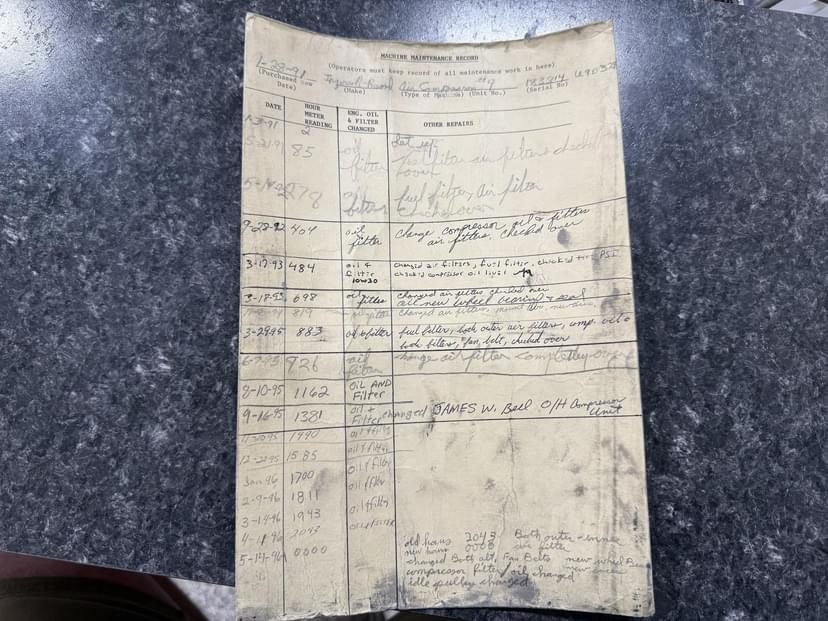 MACHINE MAINTENANCE RECORD
(Operators must keep record of all maintenance work in here)
1-28-91 Ingersoll-Rand Air Compressor
(Purchased New Date) (Make) (Type of Machine) (Unit No.) (Serial No)
DATE HOUR METER READING ENG. OIL & FILTER CHANGED OTHER REPAIRS
1-3-91 2
5-21-91 85 oil filter fuel filter air filters checked over
278 fuel filter, air filter checked over
9-22-92 404 oil filter change compressor oil & filters air filters, checked over
3-17-93 484 oil & filter 10W30 changed air filters, fuel filter, checked tire PSI
checked compressor oil level
698 oil filter changed air filters checked over
all new wheel bearing & seal
819 changed air filters,
3-29-95 883 oil & filter fuel filter, both outer air filters, comp. oil &
both filters, fan belt, checked over
6-7-95 926 oil filter change air filter completely over
8-10-95 1162 OIL AND Filter
9-16-95 1381 oil & Filter changed JAMES W. Bell O/H Compressor Unit
1490 oil & filter
12-22-95 1585 oil & filter
Jan 96 1700 oil & filter
2-9-96 1811
3-14-96 1943 oil & filter
4-11-96 2043
5-14-96 0000
old hours 2043 Both outer - inner
new hours 0000 air filter
changed Both alt, Fan Belts new wheel
compressor filter, oil changed
idle pulley changed